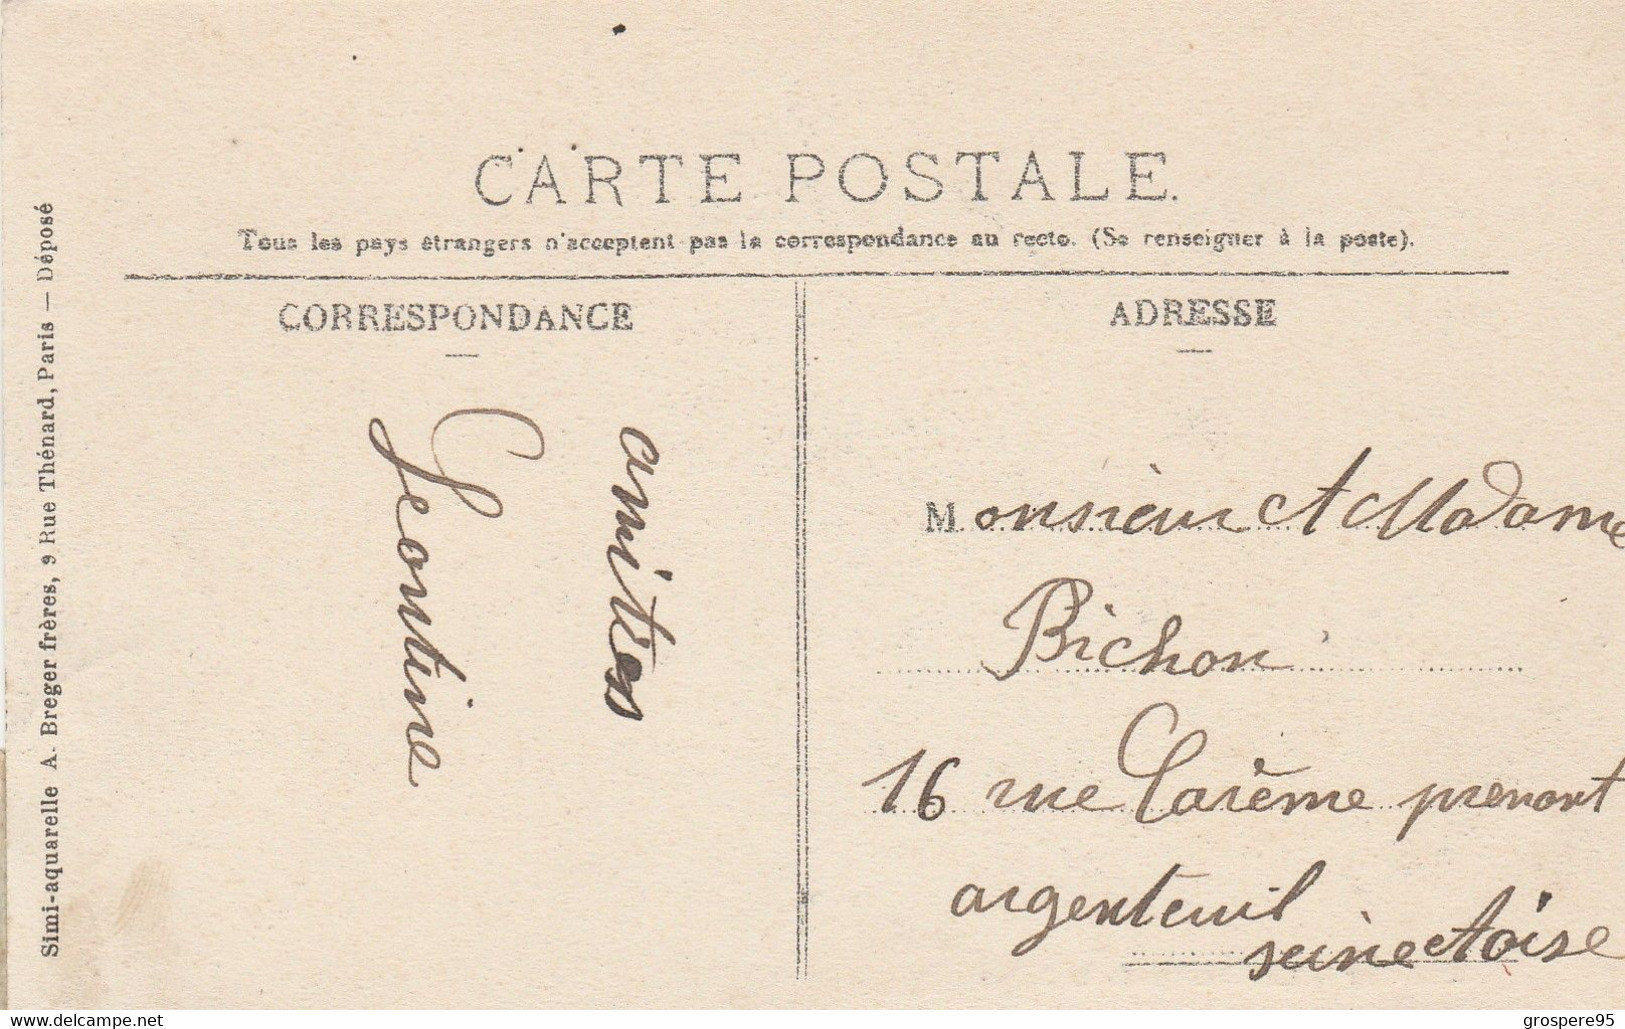 CARTE POSTALE.
Tous les pays étrangers n'acceptent pas la correspondance au recto. (Se renseigner à la poste).
CORRESPONDANCE
ADRESSE
Simi-aquarelle A. Breger frères, 9 Rue Thénard, Paris — Déposé
amities
Leontine
Monsieur et Madame
Bichon
16 rue Carème prenant
argenteuil
seine et oise
www.delcampe.net
grospere95